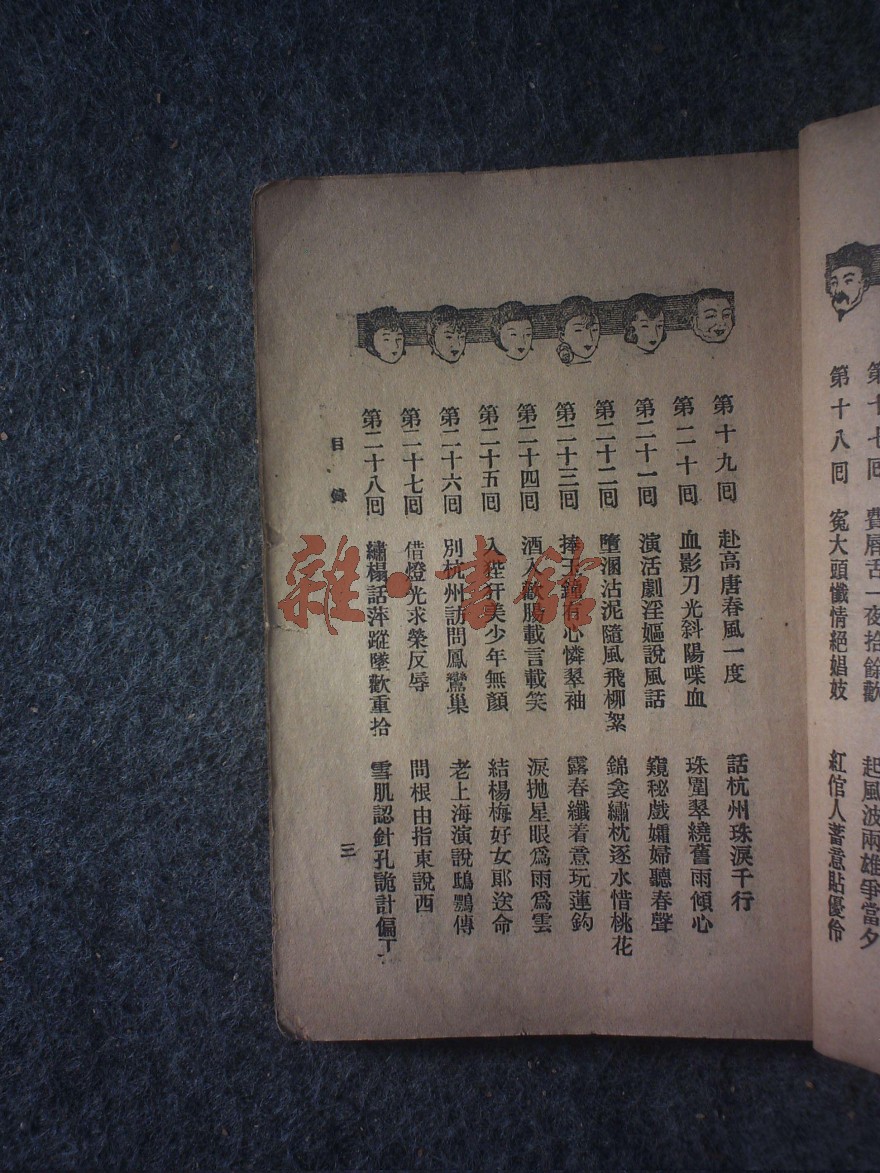 第十七回 費唇舌一夜拾餘歡 起風波兩雄爭當夕
第十八回 寃大頭懺情絕娼妓 紅倌人蓄意貼優伶
第十九回 赴高唐春風一度 話杭州珠淚千行
第二十回 血影刀光斜陽喋血 珠圍翠繞舊雨傾心
第二十一回 演活劇淫嫗說風話 窺秘戲孀婦聽春聲
第二十二回 墮溷沾泥隨風飛柳絮 錦衾繡枕逐水惜桃花
第二十三回 捧玉鐘有心憐翠袖 露春纖着意玩蓮鈎
第二十四回 酒入歡腸載言載笑 淚拋星眼爲雨爲雲
第二十五回 入狴犴美少年無顏 結楊梅好女郞送命
第二十六回 別杭州訪問鳳鸞巢 老上海演說鴟鸮傳
第二十七回 借燈光求榮反辱 問根由指東說西
第二十八回 繡榻話萍蹤墜歡重拾 雪肌認針孔詭計偏工
目錄
三
雜·書館